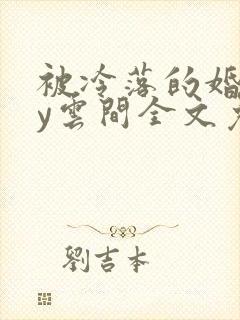 被冷落的婚
y雲間全文
劉吉本